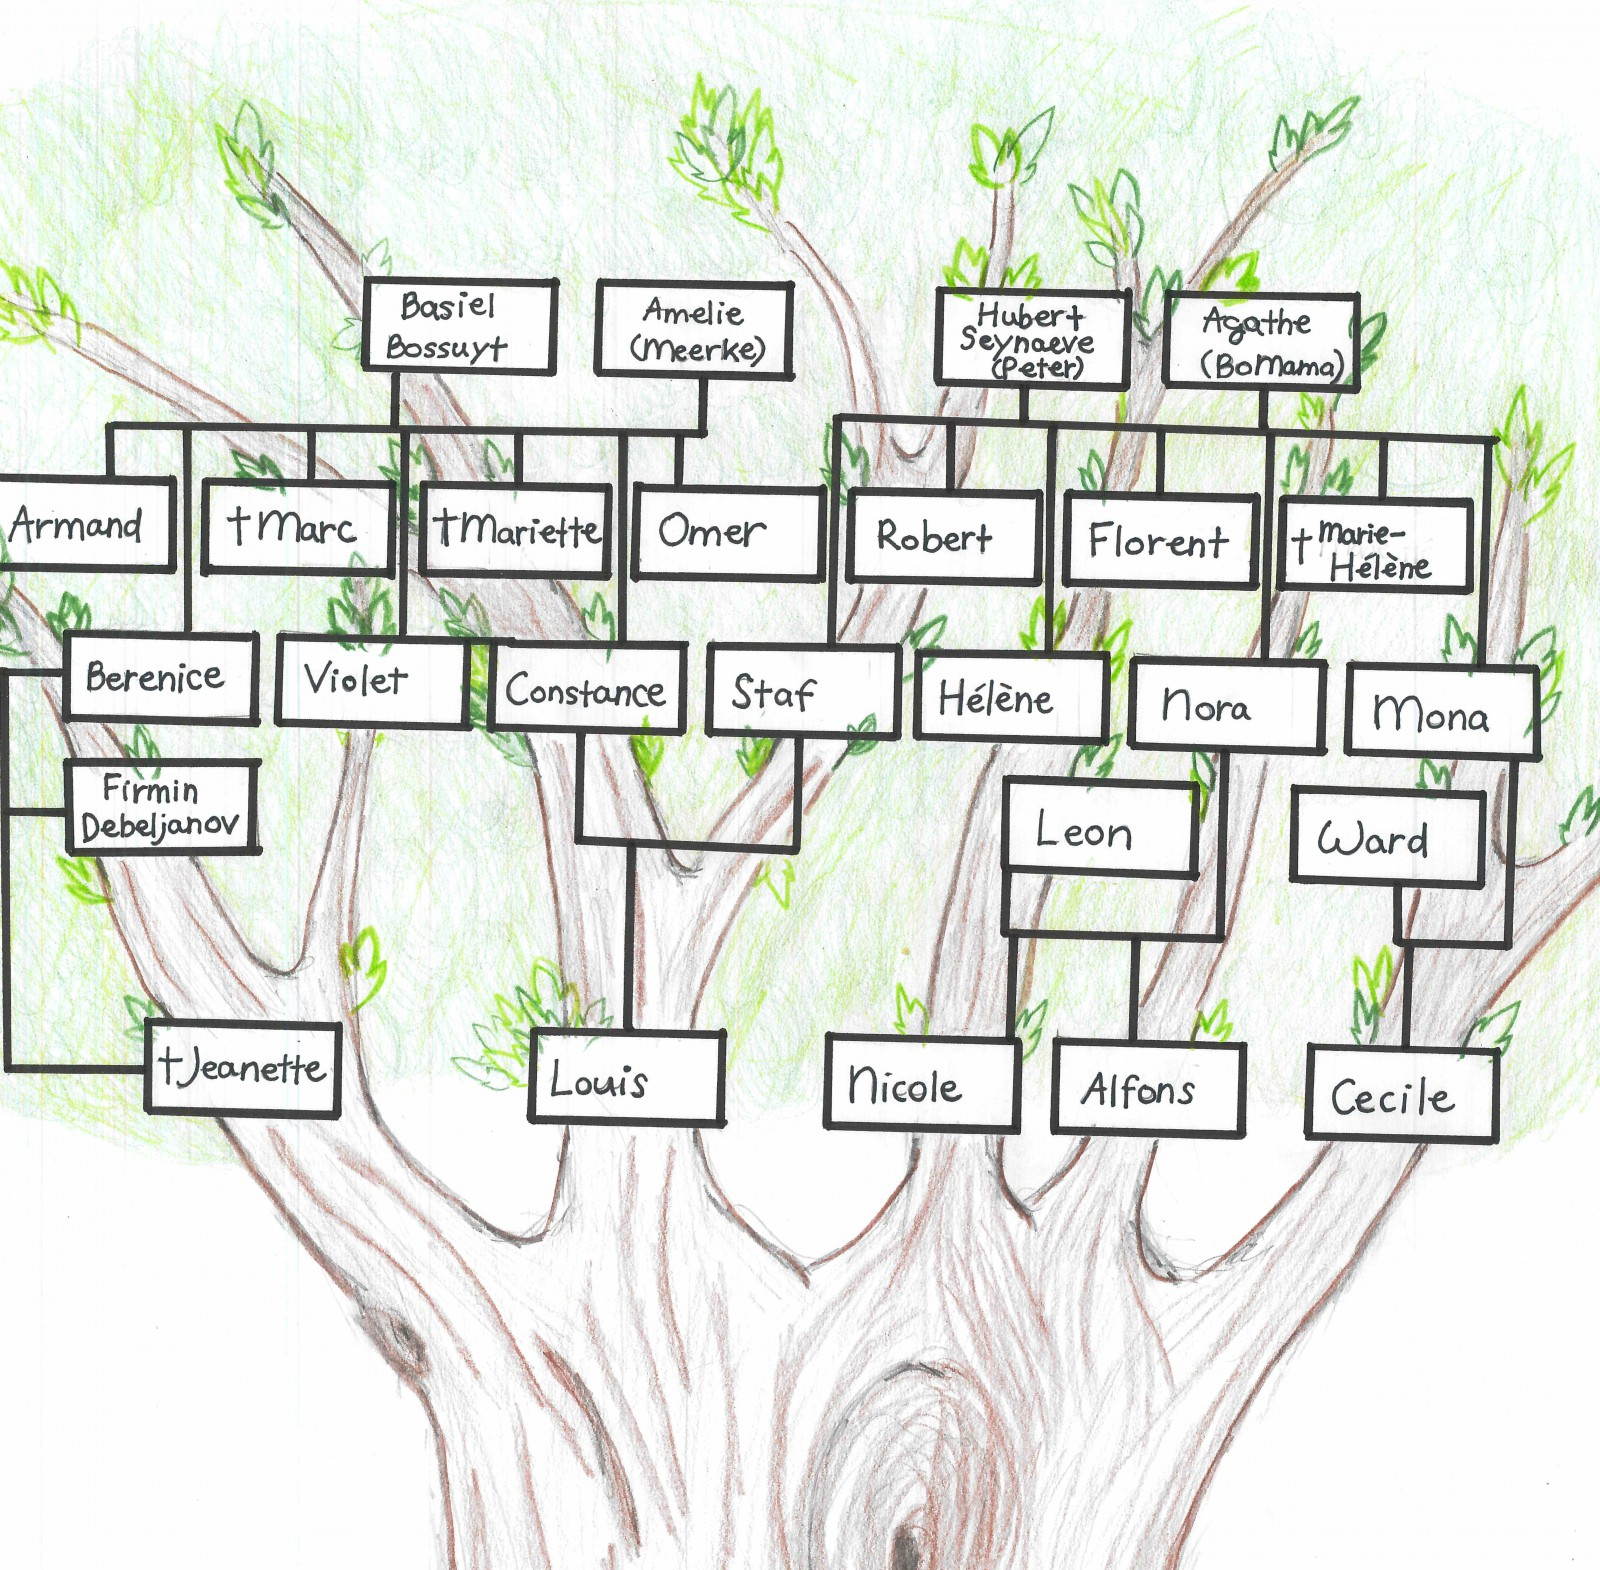 Basiel
Bossuyt
Amelie
(Meerke)
Hubert
Seynaeve
(Peter)
Agathe
(BoMama)
Armand
†Marc
†Mariette
Omer
Robert
Florent
†Marie-
Hélène
Berenice
Violet
Constance
Staf
Hélène
Nora
Mona
Firmin
Debeljanov
Leon
Ward
†Jeanette
Louis
Nicole
Alfons
Cecile